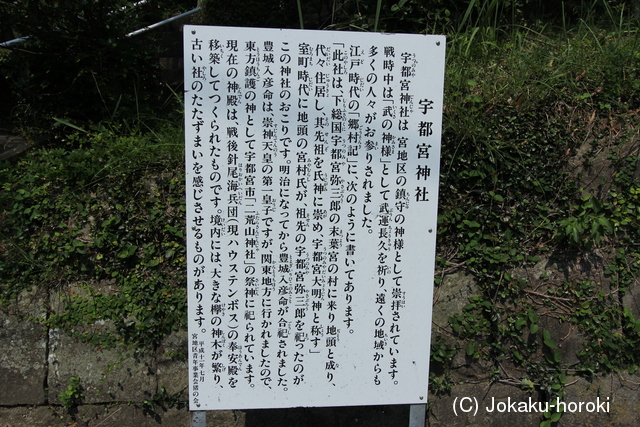 宇都宮神社
宇都宮神社は、宮地区の鎮守の神様として崇拝されています。
戦時中は「武の神様」として武運長久を祈り、遠くの地域からも
多くの人々がお参りされました。
江戸時代の「郷村記」に、次のように書いてあります。
「此社は、下総国宇都宮弥三郎の末葉宮の村に来り地頭と成り、
代々住居し其先祖を氏神に崇め、宇都宮大明神と称す」
室町時代に地頭の宮村氏が、祖先の宇都宮弥三郎を祀ったのが
この神社のおこりです。明治になってから豊城入彦命が合祀されました。
豊城入彦命は、崇神天皇の第一皇子ですが、関東地方に行かれましたので、
東方鎮護の神として宇都宮市「二荒山神社」の祭神に祀られています。
現在の神殿は、戦後針尾海兵団(現ハウステンボス)の奉安殿を
移築してつくられたものです。境内には、大きな欅の神木が繁り、
古い社のたたずまいを感じさせるものがあります。
平成十一年七月
宮地区青年事業会猪の会
(C) Jokaku-horoki